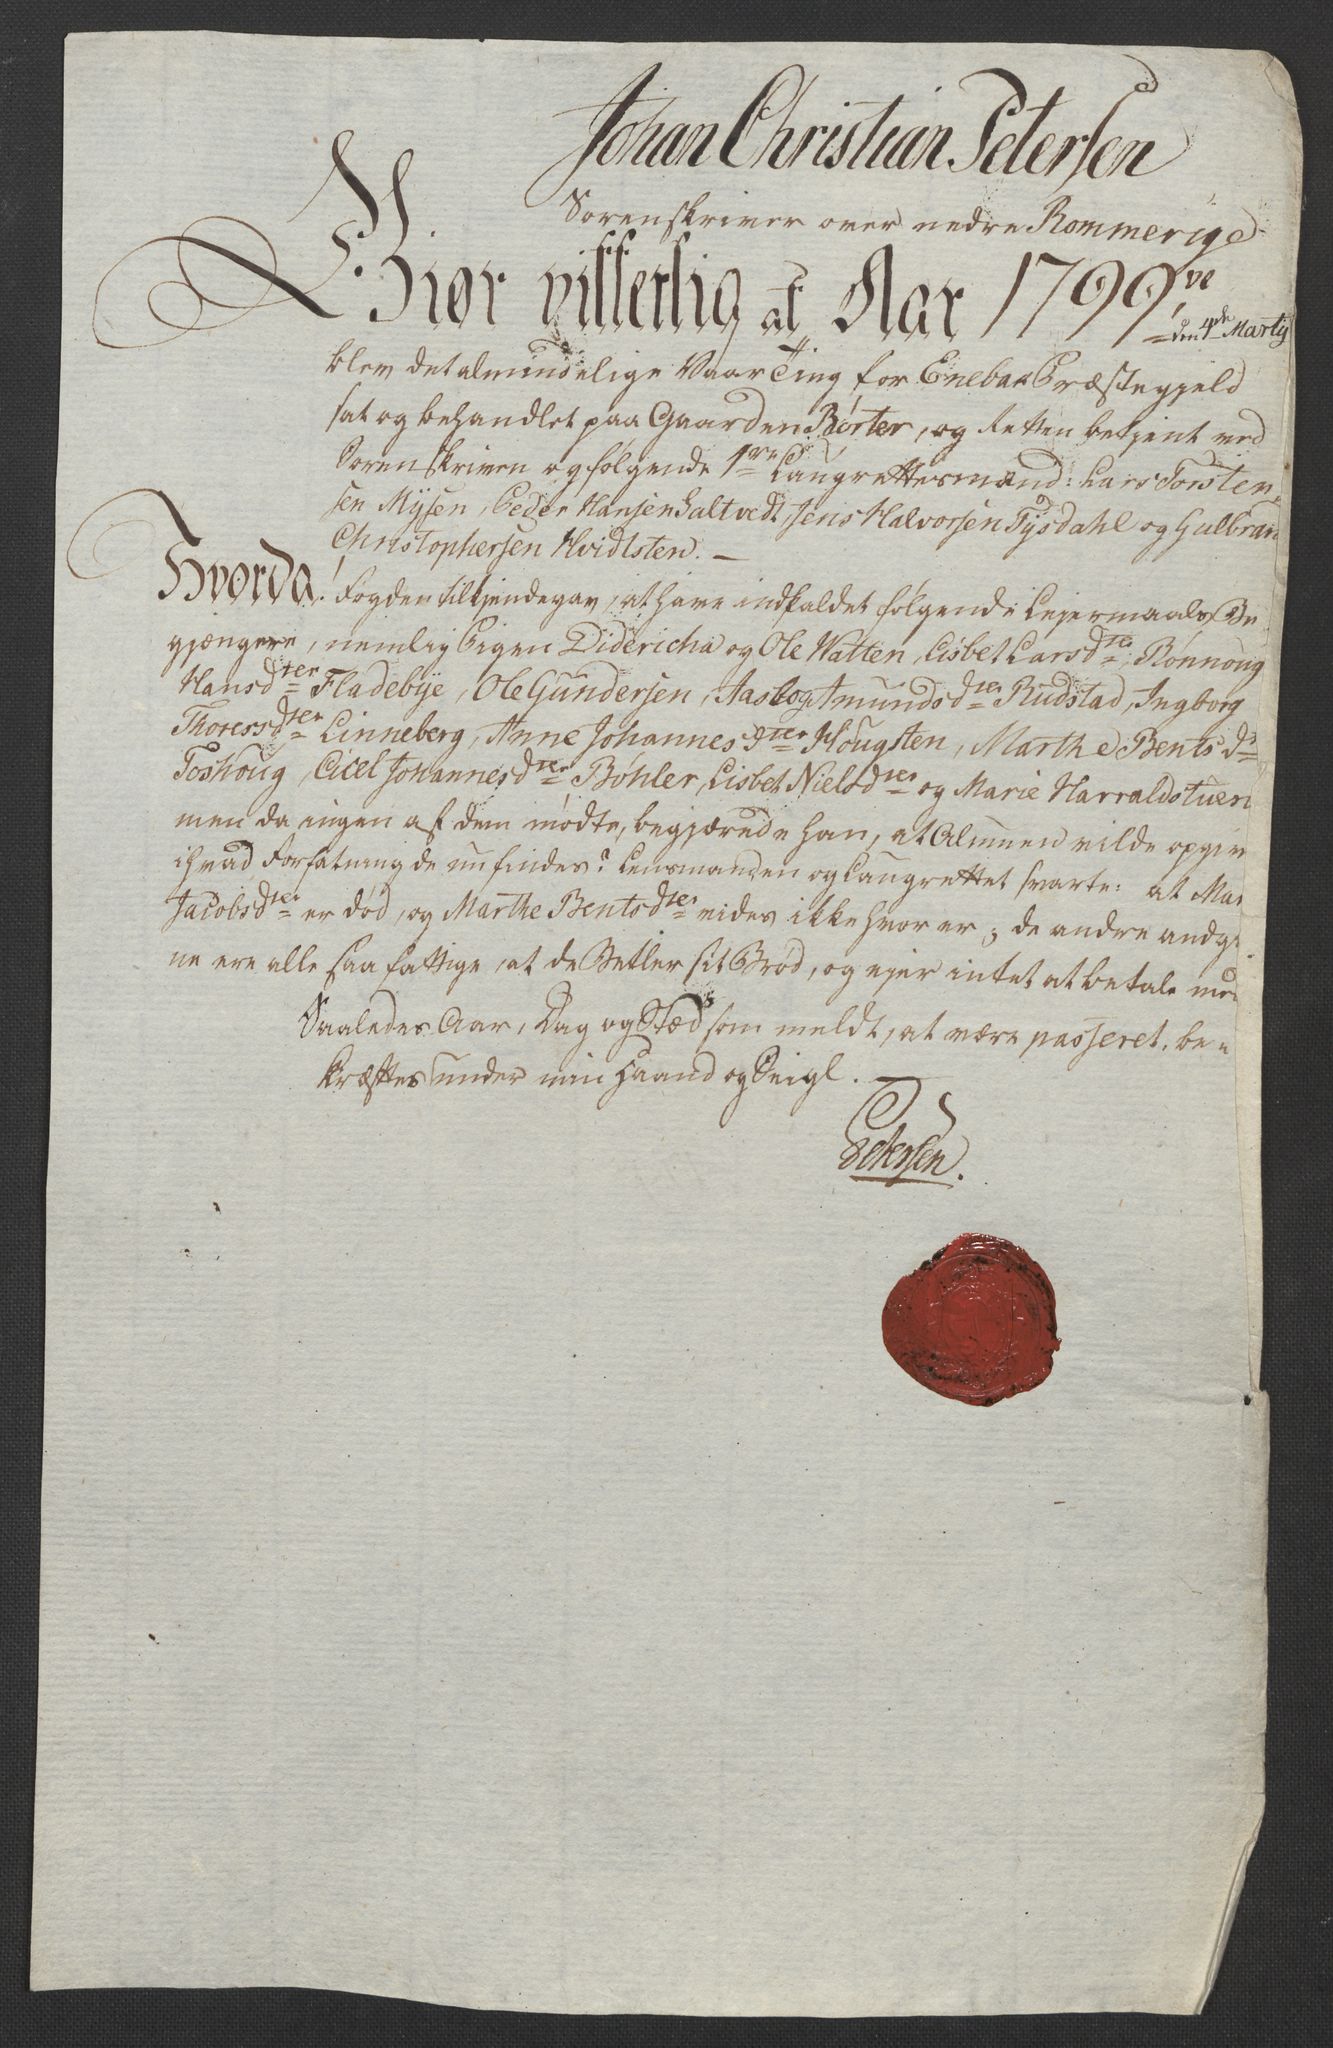 Johan Christian Petersen
Sorenskriver over nedre Rommerige
Giør vitterlig at Aar 1799ve den 4de Martij
blev det almindelige Vaar Ting for Enebak Præstegjeld
sat og behandlet paa Gaarden Børter, og Retten betjent med
Sorenskriven og følgende Laugrettesmænd: Lars Torsten
sen Mysen, Peder Hansen Saltvedt, Jens Halvorsen Tysdahl og Gulbran
Christophersen Hvidtsten. —
Hvorda Fogden tilkjendegav, at have indkaldet følgende Lejermaals Be
gjængere, nemlig Pigen Didericha og Ole Watten, Lisbet Larsdter, Rønnoug
Hansdter Fladebye, Ole Gundersen, Aaslog Amundsdter Rudstad, Ingborg
Thoresdter Linneberg, Anne Johannesdter Hougsten, Marthe Bentsdtr
Toshoug, Cicel Johannesdter Bøhler, Lisbet Nielsdter og Marie Harraldstuen
men da ingen af dem mødte, begjærede han, at Almuen vilde opgiv
ihvad Forfatning de nu findes? Lensmanden og Laugrettet svarte: at Mar
Jacobsdter er død, og Marthe Bentsdter vides ikke hvor er; de andre angi
ne ere alle saa fattige, at de Betler sit Brød, og ejer intet at betale med
Saaledes Aar, Dag og Stæd som meldt, at være passeret, be=
kræftes under min Haand og Seigl. —
Petersen.